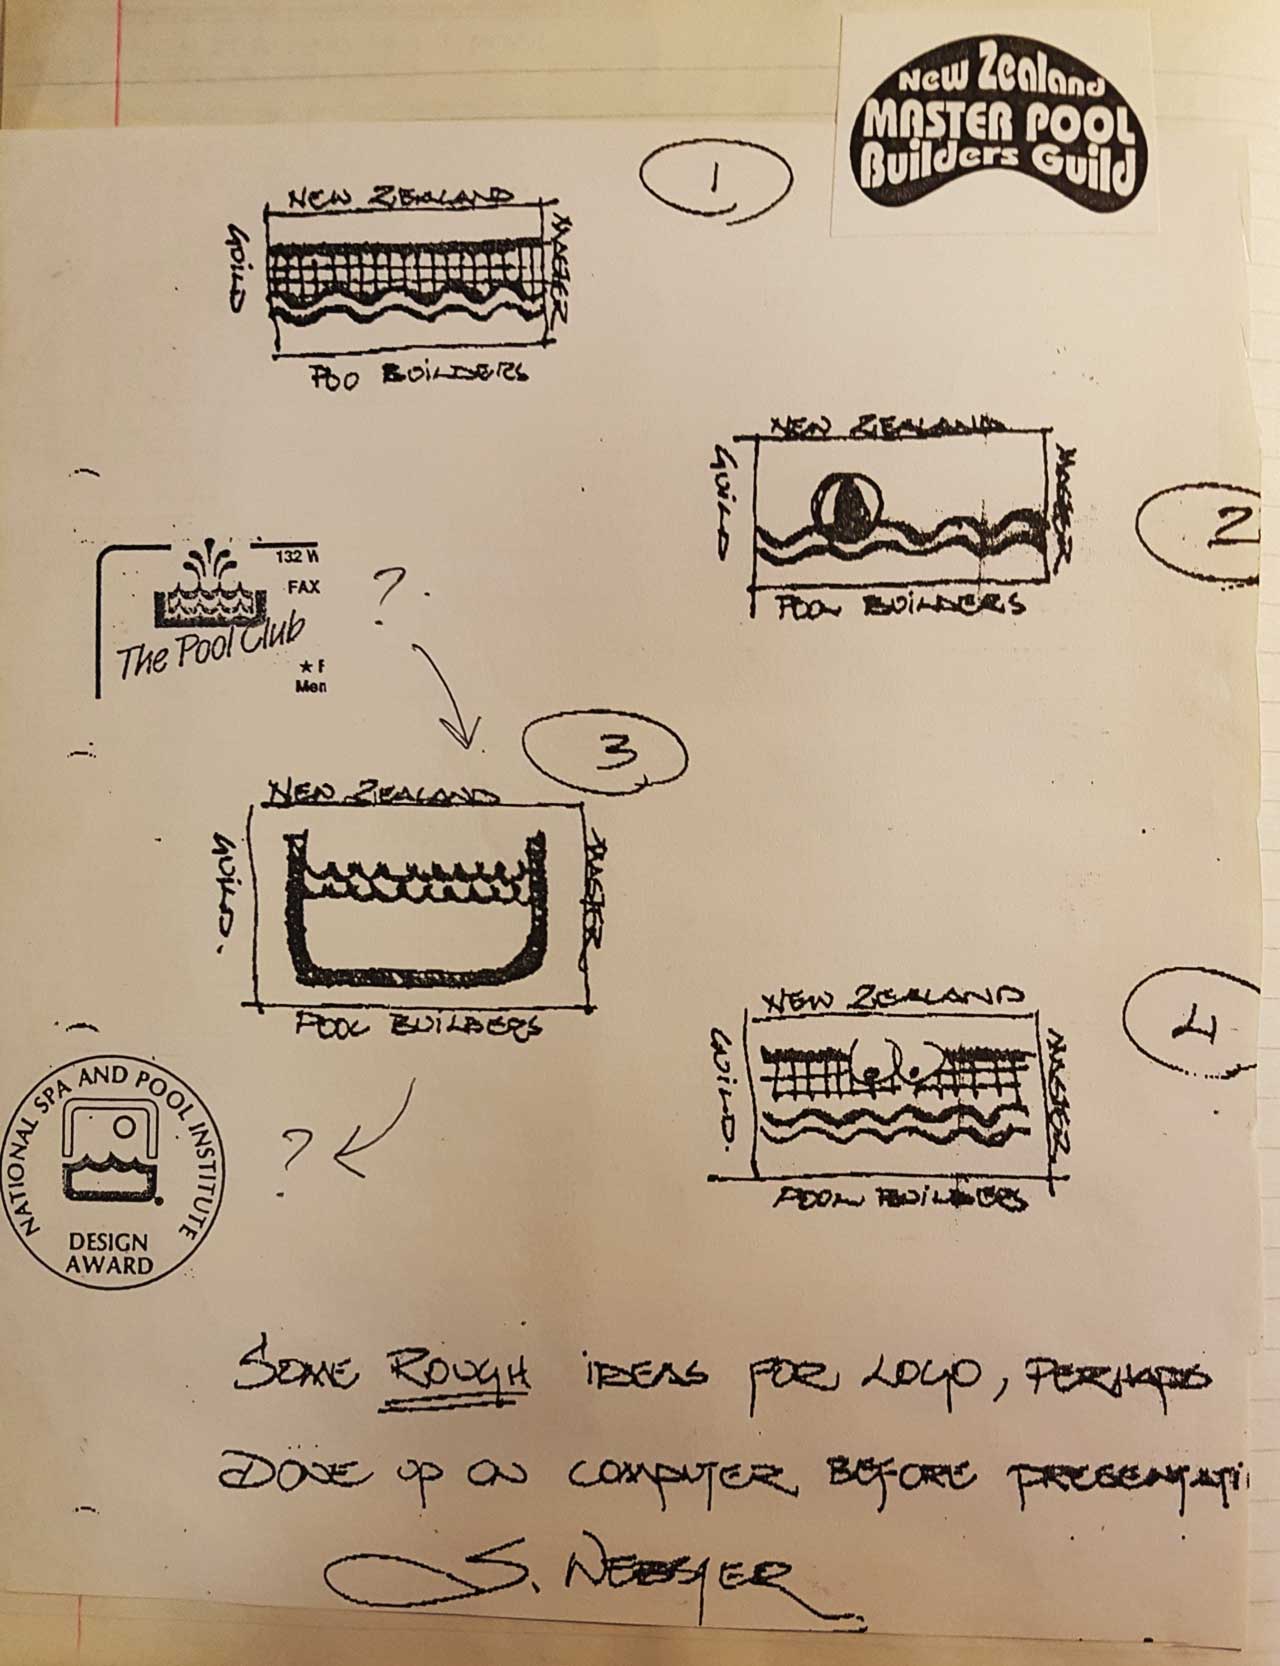 New Zealand
MASTER POOL
Builders Guild
1
NEW ZEALAND
GUILD
MASTER
POO BUILDERS
2
NEW ZEALAND
GUILD
MASTER
POOL BUILDERS
132 W
FAX
The Pool Club
★ F
Men
?
3
NEW ZEALAND
GUILD.
MASTER
POOL BUILDERS
4
NEW ZEALAND
GUILD.
MASTER
POOL BUILDERS
NATIONAL SPA AND POOL INSTITUTE
DESIGN
AWARD
?
SOME ROUGH IDEAS FOR LOGO, PERHAPS
DONE UP ON COMPUTER BEFORE PRESENTATI
S. WEBSTER